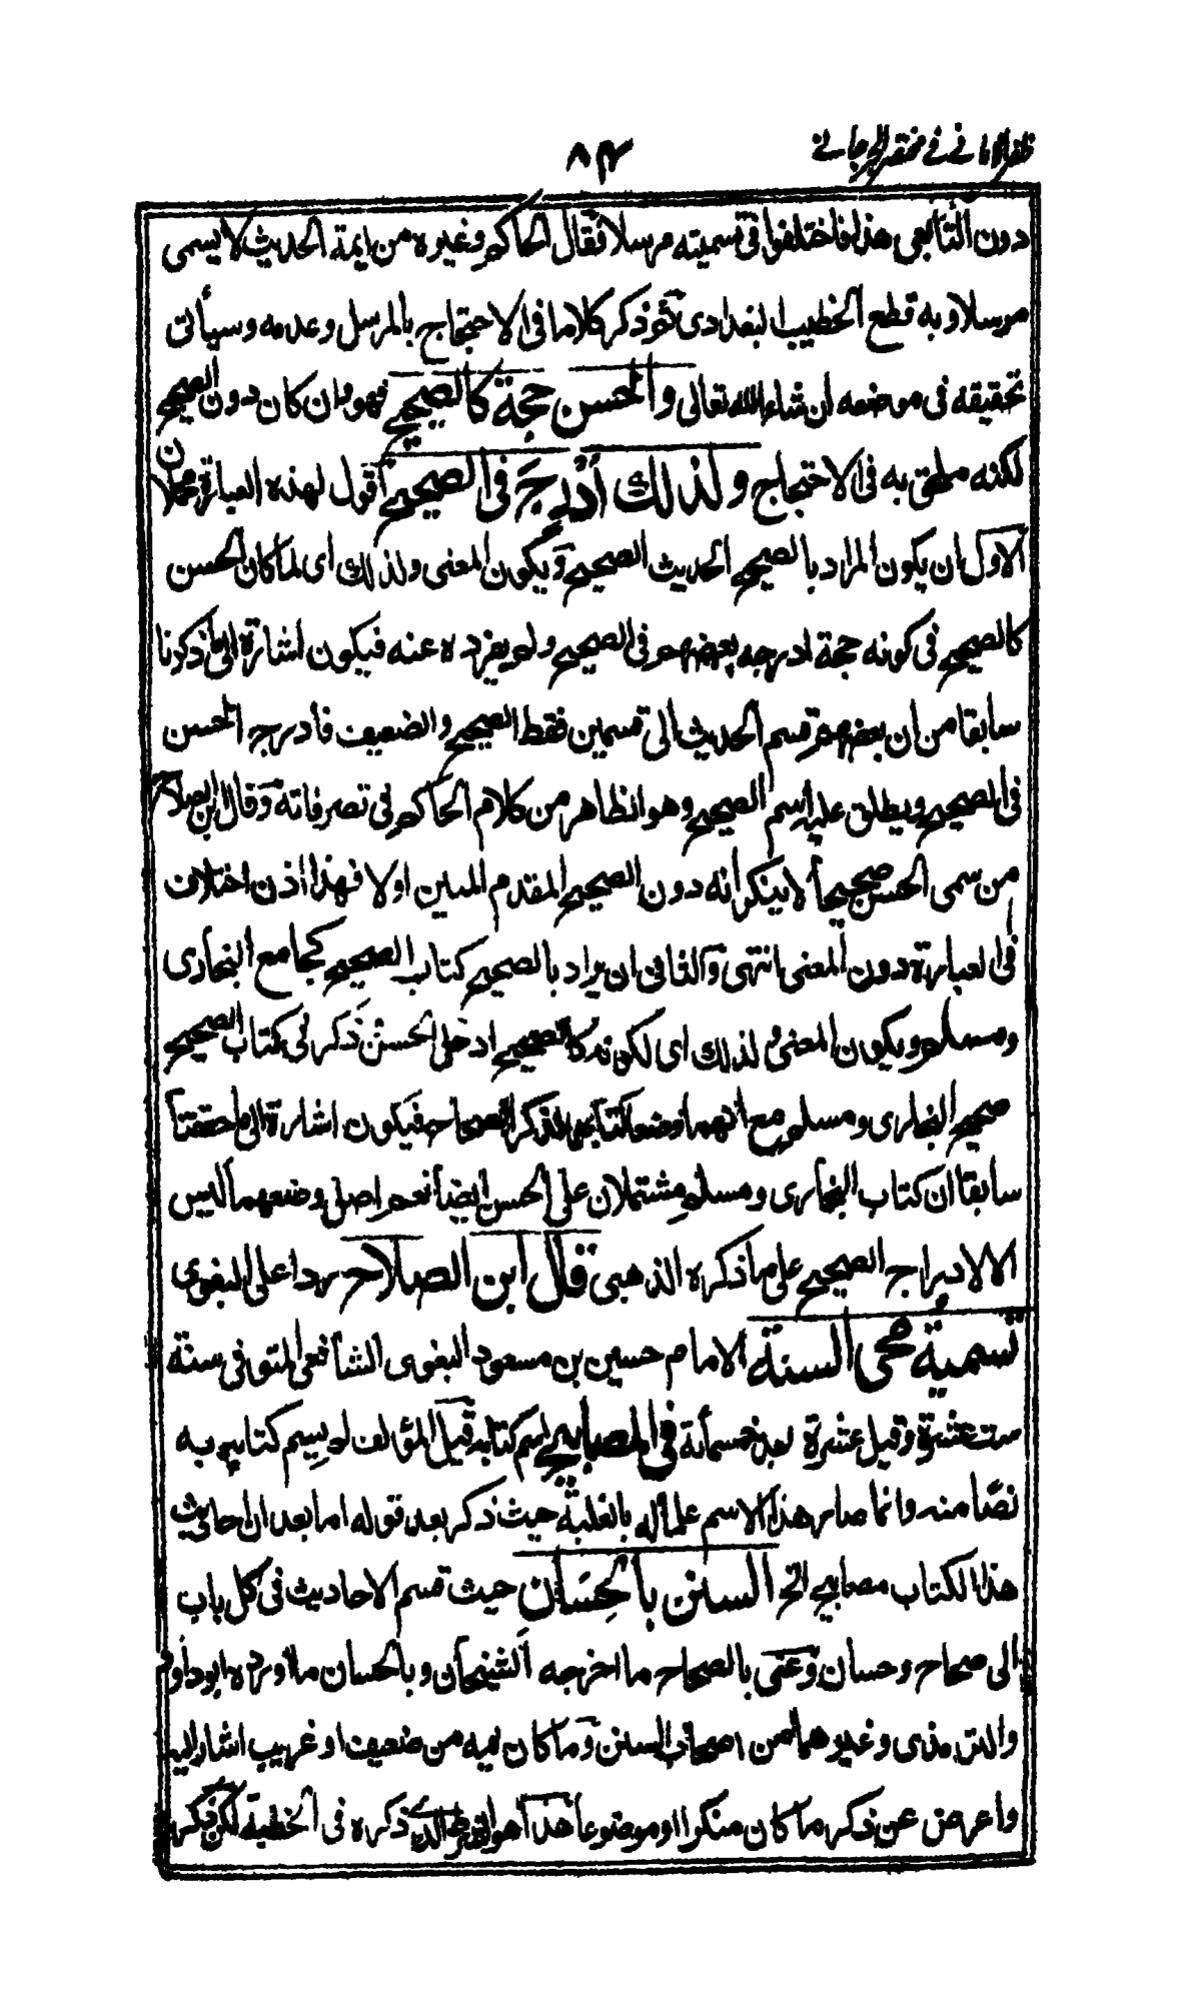 ظفر الامانى فى مختصر الجرجانى
٨۴
دون التابعى هذا فاختلفوا فى تسميته مرسلا فقال الحاكم وغيره من ايمة الحديث لا يسمى
مرسلا وبه قطع الخطيب البغدادى ثم ذكر كلاما فى الاحتجاج بالمرسل وعدمه وسيأتى
تحقيقه فى موضعه ان شاء الله تعالى والحسن حجة كالصحيح فهو وان كان دون الصحيح
لكنه ملحق به فى الاحتجاج ولذلك أُدْرِجَ فى الصحيح اقول لهذه العبارة محملان
الاول ان يكون المراد بالصحيح الحديث الصحيح ويكون المعنى ولذلك اى لما كان الحسن
كالصحيح فى كونه حجة ادرجه بعضهم فى الصحيح ولم يفرده عنه فيكون اشارة الى ما ذكرنا
سابقا من ان بعضهم قسم الحديث الى قسمين فقط الصحيح والضعيف فأدرج الحسن
فى الصحيح ويطلق عليه اسم الصحيح وهو الظاهر من كلام الحاكم فى تصرفاته وقال ابن الصلاح
من سمى الحسن صحيحا لا ينكر انه دون الصحيح المقدم المبين اولا فهذا اذن اختلاف
فى العبارة دون المعنى انتهى والثانى ان يراد بالصحيح كتاب الصحيح كجامع البخارى
ومسلم ويكون المعنى ولذلك اى لكونه كالصحيح ادخل الحسن وذكر فى كتاب الصحيح
صحيح البخارى ومسلم مع انهما وضعا كتابهما لذكر الصحاح فيكون اشارة الى ما حققنا
سابقا ان كتاب البخارى ومسلم مشتملان على الحسن ايضا نعم اصل وضعهما ليس
الا لادراج الصحيح على ما ذكره الذهبى قال ابن الصلاح ردا على البغوى
تسمية محى السنة الامام حسين بن مسعود البغوى الشافعى المتوفى سنة
ست عشرة وقيل عشرة بعد خمسمائة فى المصابيح اسم كتابه قيل المؤلف لم يسم كتابه به
نصّا منه وانما صار هذا الاسم علما له بالغلبة حيث ذكر بعد قوله اما بعد ان احاديث
هذا الكتاب مصابيح الخ السنن بالحِسَان حيث قسم الاحاديث فى كل باب
الى صحاح وحسان وعنى بالصحاح ما اخرجه الشيخان وبالحسان ما اورده ابو داود
والترمذى وغيرهما من اصحاب السنن وما كان فيه من ضعيف او غريب اشار اليه
واعرض عن ذكر ما كان منكرا او موضوعا هذا هو الشرط الذى ذكره فى الخطبة لكن ذكر